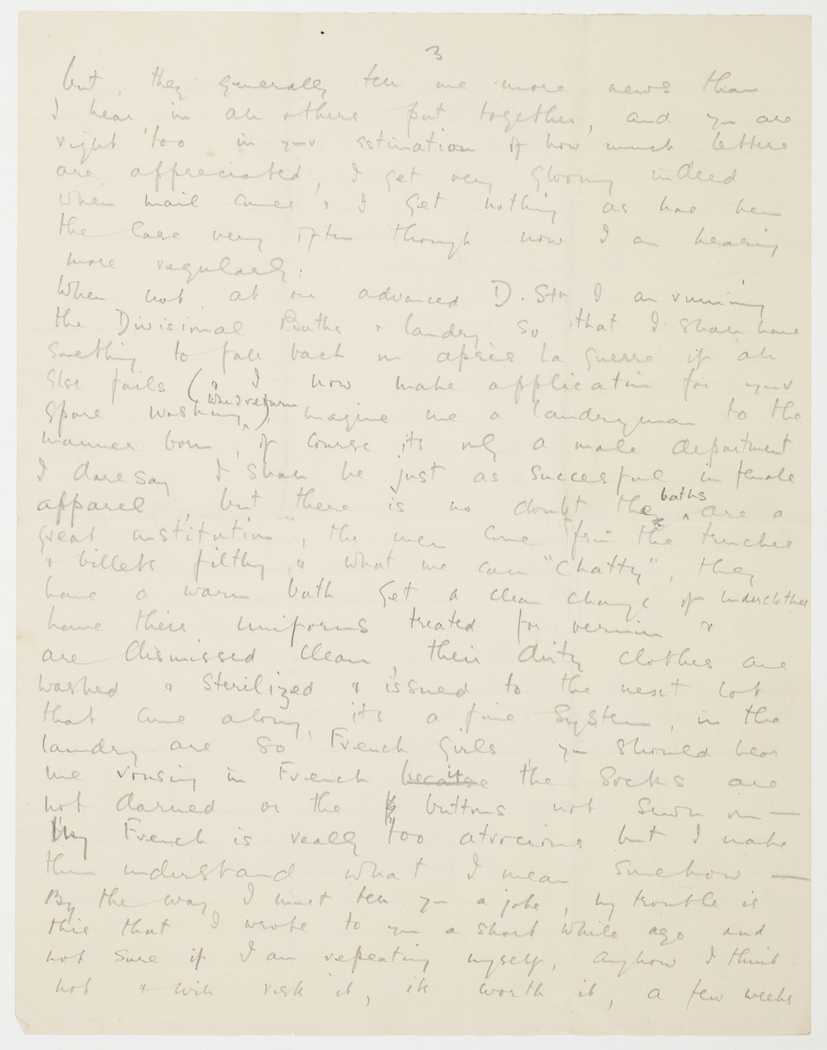 3
but, they generally tell me more news than
I hear in all others put together, and you are
right too in your estimation of how much letters
are appreciated, I get very gloomy indeed
when mail comes & I get nothing as has been
the case very often though now I am hearing
more regularly.
When not at our advanced D. Stn I am running
the Divisional Baths & landry so that I shall have
something to fall back on après la guerre if all
else fails (& I now make application for your
spare washing when I return) imagine me a landryman to the
manner born, of course its only a male department
I daresay I shall be just as succesful in female
apparel, but there is no doubt the baths are a
great institution, the men come from the trenches
& billets filthy & what we call "Chatty", they
have a warm bath get a clean change of underclothes
have their uniforms treated for vermin &
are dismissed clean, their dirty clothes are
washed & sterilized & issued to the next lot
that come along, its a fine system, in the
landry are 50 French girls you should hear
me rousing in French because if the socks are
not darned or the buttons not sewn on —
My French is really too atrocious but I make
them understand what I mean somehow —
By the way I must tell you a joke, my trouble is
this that I wrote to you a short while ago and
not sure if I am repeating myself, anyhow I think
not & will risk it, its worth it, a few weeks